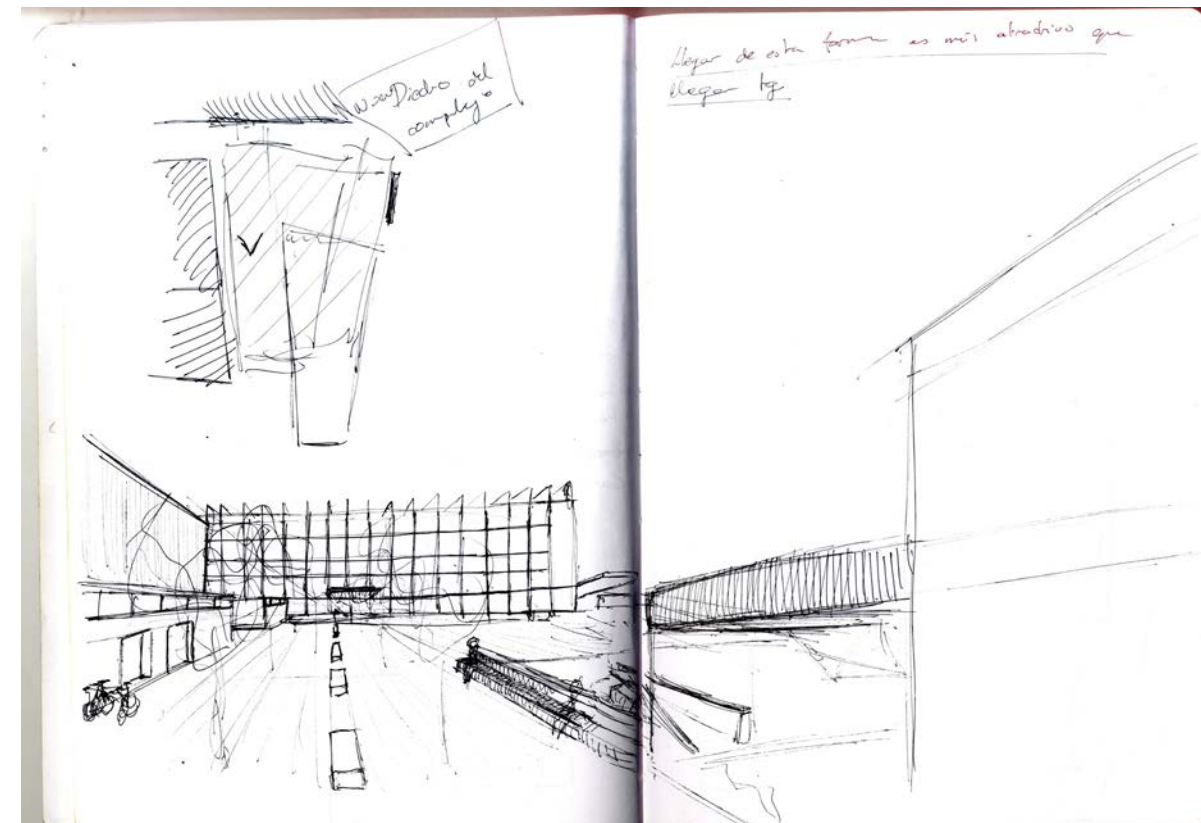 Diedro del
complejo
Llegar de esta forma es más atractivo que
llegar tg